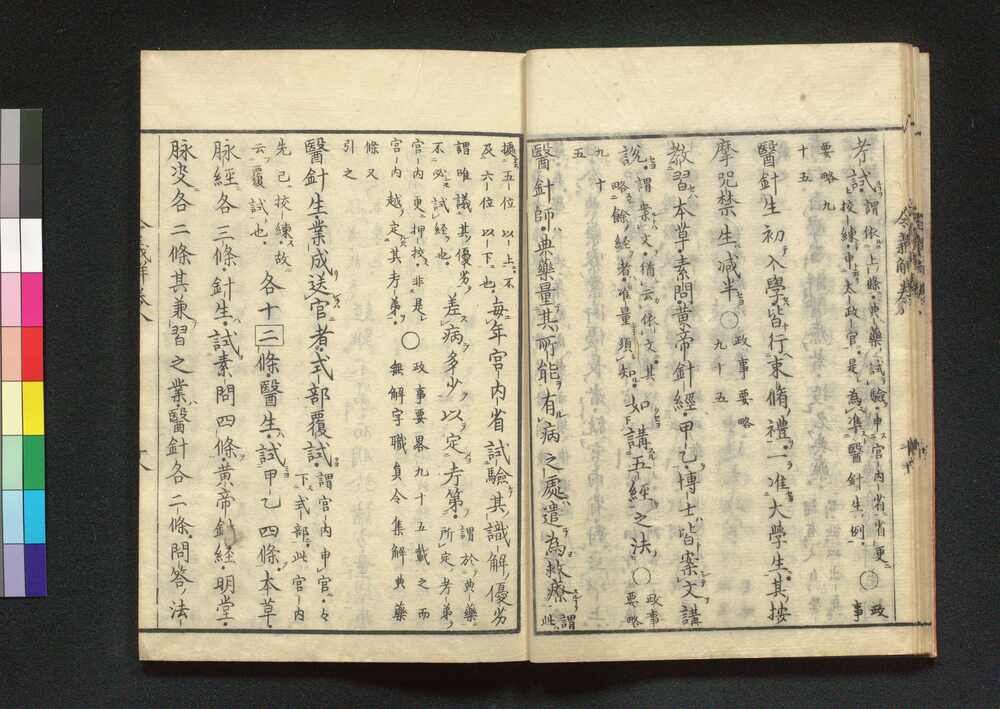 考試謂依上條典藥試驗申宮内省省更
校練申太政官是為准醫針生例〇政事
要略九
十五
醫針生初入學皆行束脩禮一准大學生其按
摩咒禁生減半〇政事要略
九十五
教習本草素問黄帝針經甲乙博士皆案文講
說謂案文猶云依文其
略餘經者准量須知如講五經之法〇政事
要略
九十
五
醫針師典藥量其所能有病之處遣為救療謂
此
據五位以上不
及六位以下也每年宮内省試驗其識解優劣
謂唯議其優劣
不必試經也差病多少以定考第謂於典藥
所定考第
宮内更押挍非是
宮内越定其考第〇政事要畧九十五載之而
無解字職員令集解典藥
條又
引之
醫針生業成送官者式部覆試謂宮内申官々
下式部此宮内
先已挍練故
云覆試也各十二條醫生試甲乙四條本草
脉經各三條針生試素問四條黄帝針經明堂
脉決各二條其兼習之業醫針各二條問答法